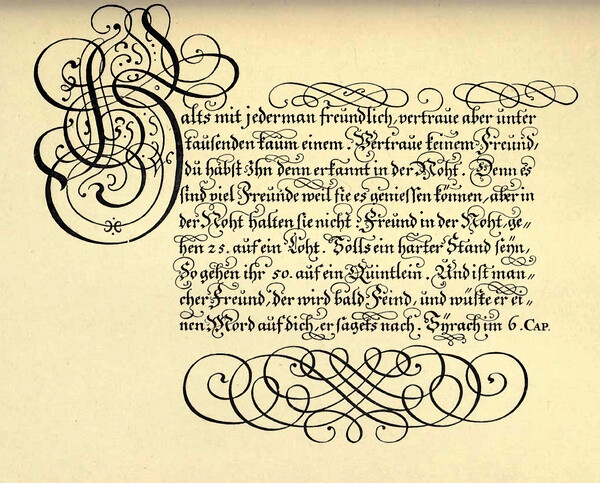 Halts mit jederman freündlich, vertraue aber unter
tausenden kaum einem. Vertraue keinem Freünd,
dü habst Ihn denn erkannt in der Noht. Denn es
sind viel Freünde weil sie es geniessen können, aber in
der Noht halten sie nicht: Freünd in der Noht, ge⸗
hen 25. auf ein Loht. Solls ein harter Stand seÿn,
So gehen ihr 50. auf ein Quintlein. Und ist man⸗
cher Freünd, der wird bald Feind, und wüste er ei⸗
nen Mord auf dich, er sagets nach. Sÿrach im 6. CAP.